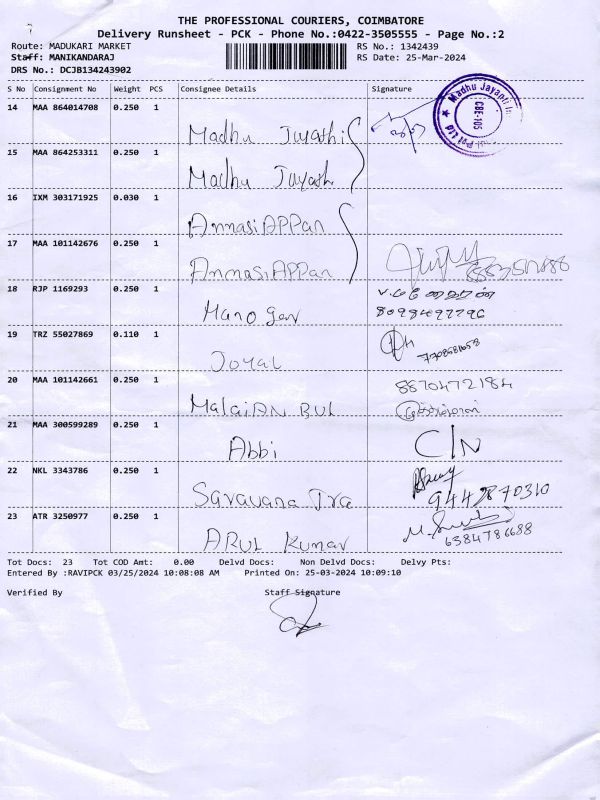 THE PROFESSIONAL COURIERS, COIMBATORE
Delivery Runsheet - PCK - Phone No.:0422-3505555 - Page No.:2
Route: MADUKARI MARKET
Staff: MANIKANDARAJ
DRS No.: DCJB134243902
RS No.: 1342439
RS Date: 25-Mar-2024
S No Consignment No Weight PCS Consignee Details Signature
14 MAA 864014708 0.250 1
Madhu
Madhu Jayanti
CBE-105
Pvt Ltd
15 MAA 864253311 0.250 1
Madhu
16 IXM 303171925 0.030 1
AmmasiAPPan
17 MAA 101142676 0.250 1
AmmasiAPPan
18 RJP 1169293 0.250 1
Mano
19 TRZ 55027869 0.110 1
Joyal
20 MAA 101142661 0.250 1
8870472184
21 MAA 300599289 0.250 1
Abbi
22 NKL 3343786 0.250 1
Saravana
23 ATR 3250977 0.250 1
ARUL Kumar
6384786688
Tot Docs: 23 Tot COD Amt: 0.00 Delvd Docs: Non Delvd Docs: Delvy Pts:
Entered By :RAVIPCK 03/25/2024 10:08:08 AM Printed On: 25-03-2024 10:09:10
Verified By Staff Signature